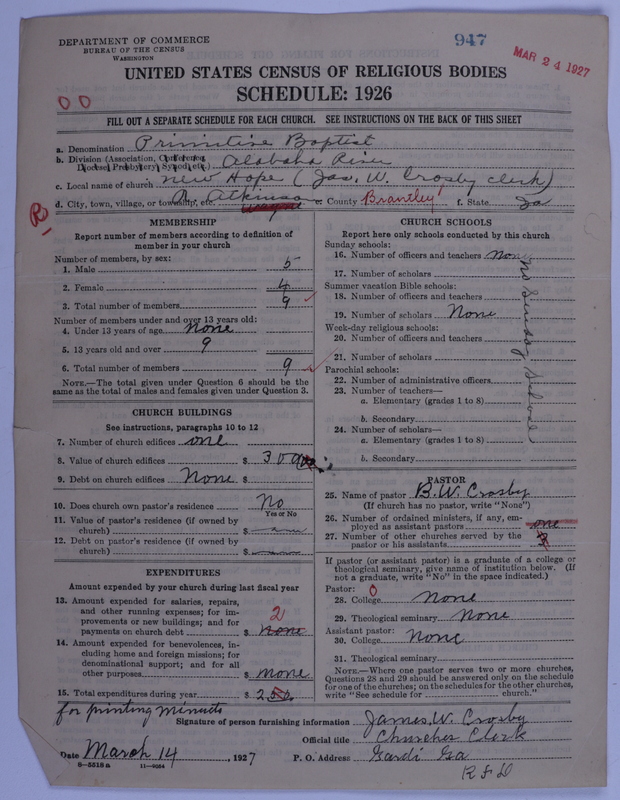 947
MAR 24 1927
DEPARTMENT OF COMMERCE
BUREAU OF THE CENSUS
WASHINGTON
UNITED STATES CENSUS OF RELIGIOUS BODIES
SCHEDULE: 1926
FILL OUT A SEPARATE SCHEDULE FOR EACH CHURCH. SEE INSTRUCTIONS ON THE BACK OF THIS SHEET
a. Denomination Primitive Baptist
b. Division (Association, Conference, Diocese, Presbytery, Synod, etc.) Alabaha River
c. Local name of church New Hope (Jas. W. Crosby clerk)
d. City, town, village, or township, etc. Atkinson Wayne e. County Brantley f. State Ga
MEMBERSHIP
Report number of members according to definition of member in your church
Number of members, by sex:
1. Male 5
2. Female 4
3. Total number of members 9
Number of members under and over 13 years old:
4. Under 13 years of age None
5. 13 years old and over 9
6. Total number of members 9
NOTE.—The total given under Question 6 should be the same as the total of males and females given under Question 3.
CHURCH BUILDINGS
See instructions, paragraphs 10 to 12
7. Number of church edifices one
8. Value of church edifices $ 300
9. Debt on church edifices None $
10. Does church own pastor's residence No
Yes or No
11. Value of pastor's residence (if owned by church) $
12. Debt on pastor's residence (if owned by church) $
EXPENDITURES
Amount expended by your church during last fiscal year
13. Amount expended for salaries, repairs, and other running expenses; for improvements or new buildings; and for payments on church debt $ None 2
14. Amount expended for benevolences, including home and foreign missions; for denominational support; and for all other purposes $ None
15. Total expenditures during year $ 2
for printing minuts
CHURCH SCHOOLS
Report here only schools conducted by this church
Sunday schools:
16. Number of officers and teachers None
17. Number of scholars
Summer vacation Bible schools:
18. Number of officers and teachers
19. Number of scholars None
Week-day religious schools:
20. Number of officers and teachers
21. Number of scholars
Parochial schools:
22. Number of administrative officers
23. Number of teachers—
a. Elementary (grades 1 to 8)
b. Secondary
24. Number of scholars—
a. Elementary (grades 1 to 8)
b. Secondary
No Sunday School
PASTOR
25. Name of pastor B. W. Crosby
(If church has no pastor, write "None")
26. Number of ordained ministers, if any, employed as assistant pastors one
27. Number of other churches served by the pastor or his assistants 3
If pastor (or assistant pastor) is a graduate of a college or theological seminary, give name of institution below. (If not a graduate, write "No" in the space indicated.)
Pastor: 0
28. College None
29. Theological seminary None
Assistant pastor:
30. College None
31. Theological seminary
NOTE.—Where one pastor serves two or more churches, Questions 28 and 29 should be answered only on the schedule for one of the churches; on the schedules for the other churches, write "See schedule for church."
Signature of person furnishing information James. W. Crosby
Official title Churches Clerk
Date March 14, 1927 P. O. Address Gardi Ga
8—5518a 11—9064
R F D